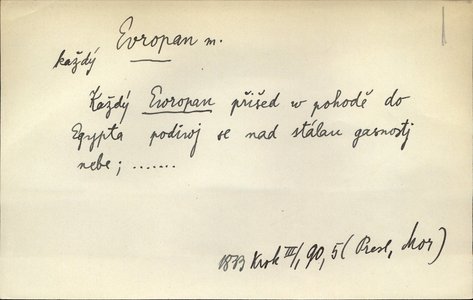 Evropan m.
každý
Každý Ewropan přišed w pohodě do
Egypta podiwj se nad stálau gasnostj
nebe; .......
1833 Krok III/1, 90, 5 (Presl, Mor)